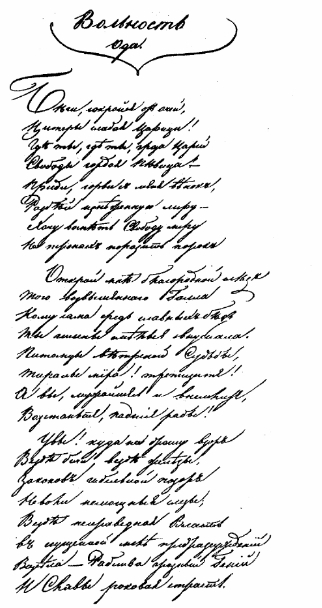 Вольность
Ода.
Бѣги, сокройся отъ очей,
Цитеры слабая Царица!
Гдѣ ты, гдѣ ты, гроза Царей
Свободы гордая Пѣвица? —
Приди, сорви съ меня вѣнокъ,
Разбей изнѣженную лиру —
Хочу воспѣть Свободу міру
На тронахъ поразить порокъ
Открой мнѣ благородной слѣдъ
Того возвышеннаго Галла
Кому сама средь славныхъ бѣдъ
Ты гимны смѣлые внушала.
Питомцы вѣтренной Судьбы,
Тираны міра! трепещите!
А вы, мужайтесь и внемлите,
Возстаньте, падшіе рабы!
Увы! куда ни брошу взоръ
Вездѣ бичи, вездѣ желѣзы,
Законовъ гибельный позоръ
Неволи немощныя слезы;
Вездѣ неправедная Власть
въ сгущенной мглѣ предразсужденій
Возсѣла — Рабства грозный Геній
И Славы роковая страсть.